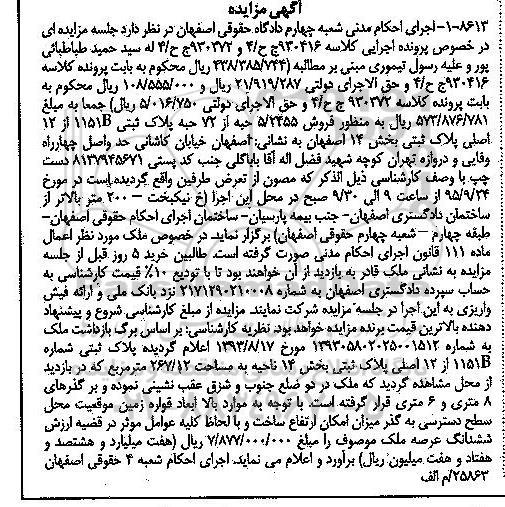 آگهی مزایده
۱-۸۶۱۳- اجرای احکام مدنی شعبه چهارم دادگاه حقوقی اصفهان در نظر دارد جلسه مزایده ای
در خصوص پرونده اجرایی کلاسه ۹۳۰۴۱۶ ج ح/۴ و ۹۳۰۳۷۲ ج ح/۴ له سید حمید طباطبائی
پور و علیه رسول تیموری مبنی بر مطالبه (۴۳۸/۳۸۵/۷۴۴ ریال محکوم به بابت پرونده کلاسه
۹۳۰۴۱۶ ج ح/۴ و حق الاجرای دولتی ۲۱/۹۱۹/۲۸۷ ریال و ۱۰۸/۵۵۵/۰۰۰ ریال محکوم به
بابت پرونده کلاسه ۹۳۰۳۷۲ ج ح/۴ و حق الاجرای دولتی ۵/۰۱۶/۷۵۰ ریال) جمعا به مبلغ
۵۷۳/۸۷۶/۷۸۱ ریال به منظور فروش ۵/۲۴۵۵ حبه از ۷۲ حبه پلاک ثبتی ۱۱۵۱B از ۱۲
اصلی پلاک ثبتی بخش ۱۴ اصفهان به نشانی: اصفهان خیابان کاشانی حد واصل چهارراه
وفایی و دروازه تهران کوچه شهید فضل اله آقا باباگلی جنب کد پستی ۸۱۳۷۹۴۵۶۷۱ دست
چپ با وصف کارشناسی ذیل الذکر که مصون از تعرض طرفین واقع گردیده است در مورخ
۹۵/۹/۲۴ از ساعت ۹ الی ۹/۳۰ صبح در محل این اجرا (خ نیکبخت – ۲۰۰ متر بالاتر از
ساختمان دادگستری اصفهان- جنب بیمه پارسیان- ساختمان اجرای احکام حقوقی اصفهان-
طبقه چهارم – شعبه چهارم حقوقی اصفهان) برگزار نماید. در خصوص ملک مورد نظر اعمال
ماده ۱۱۱ قانون اجرای احکام مدنی صورت گرفته است. طالبین خرید ۵ روز قبل از جلسه
مزایده به نشانی ملک قادر به بازدید از آن خواهند بود تا با تودیع ۱۰٪ قیمت کارشناسی به
حساب سپرده دادگستری اصفهان به شماره ۲۱۷۱۲۹۰۲۱۰۰۰۸ نزد بانک ملی و ارائه فیش
واریزی به این اجرا در جلسه مزایده شرکت نمایند. مزایده از مبلغ کارشناسی شروع و پیشنهاد
دهنده بالاترین قیمت برنده مزایده خواهد بود. نظریه کارشناسی: بر اساس برگ بازداشت ملک
به شماره ۱۳۹۳۰۵۸۰۲۰۲۵۰۰۱۵۱۲ مورخ ۱۳۹۳/۸/۱۷ اعلام گردیده پلاک ثبتی شماره
۱۱۵۱B از ۱۲ اصلی پلاک ثبتی بخش ۱۴ ناحیه به مساحت ۲۶۷/۱۲ مترمربع که در بازدید
از محل مشاهده گردید که ملک در دو ضلع جنوب و شرق عقب نشینی نموده و بر گذرهای
۸ متری و ۶ متری قرار گرفته است. با توجه به موارد بالا ابعاد قواره زمین موقعیت محل
سطح دسترسی به گذر میزان امکان ارتفاع ساخت و با لحاظ کلیه عوامل موثر در قضیه ارزش
ششدانگ عرصه ملک موصوف را مبلغ ۷/۸۷۷/۰۰۰/۰۰۰ ریال (هفت میلیارد و هشتصد و
هفتاد و هفت میلیون ریال) برآورد و اعلام می نماید. اجرای احکام شعبه ۴ حقوقی اصفهان
۲۵۸۶۳/م الف